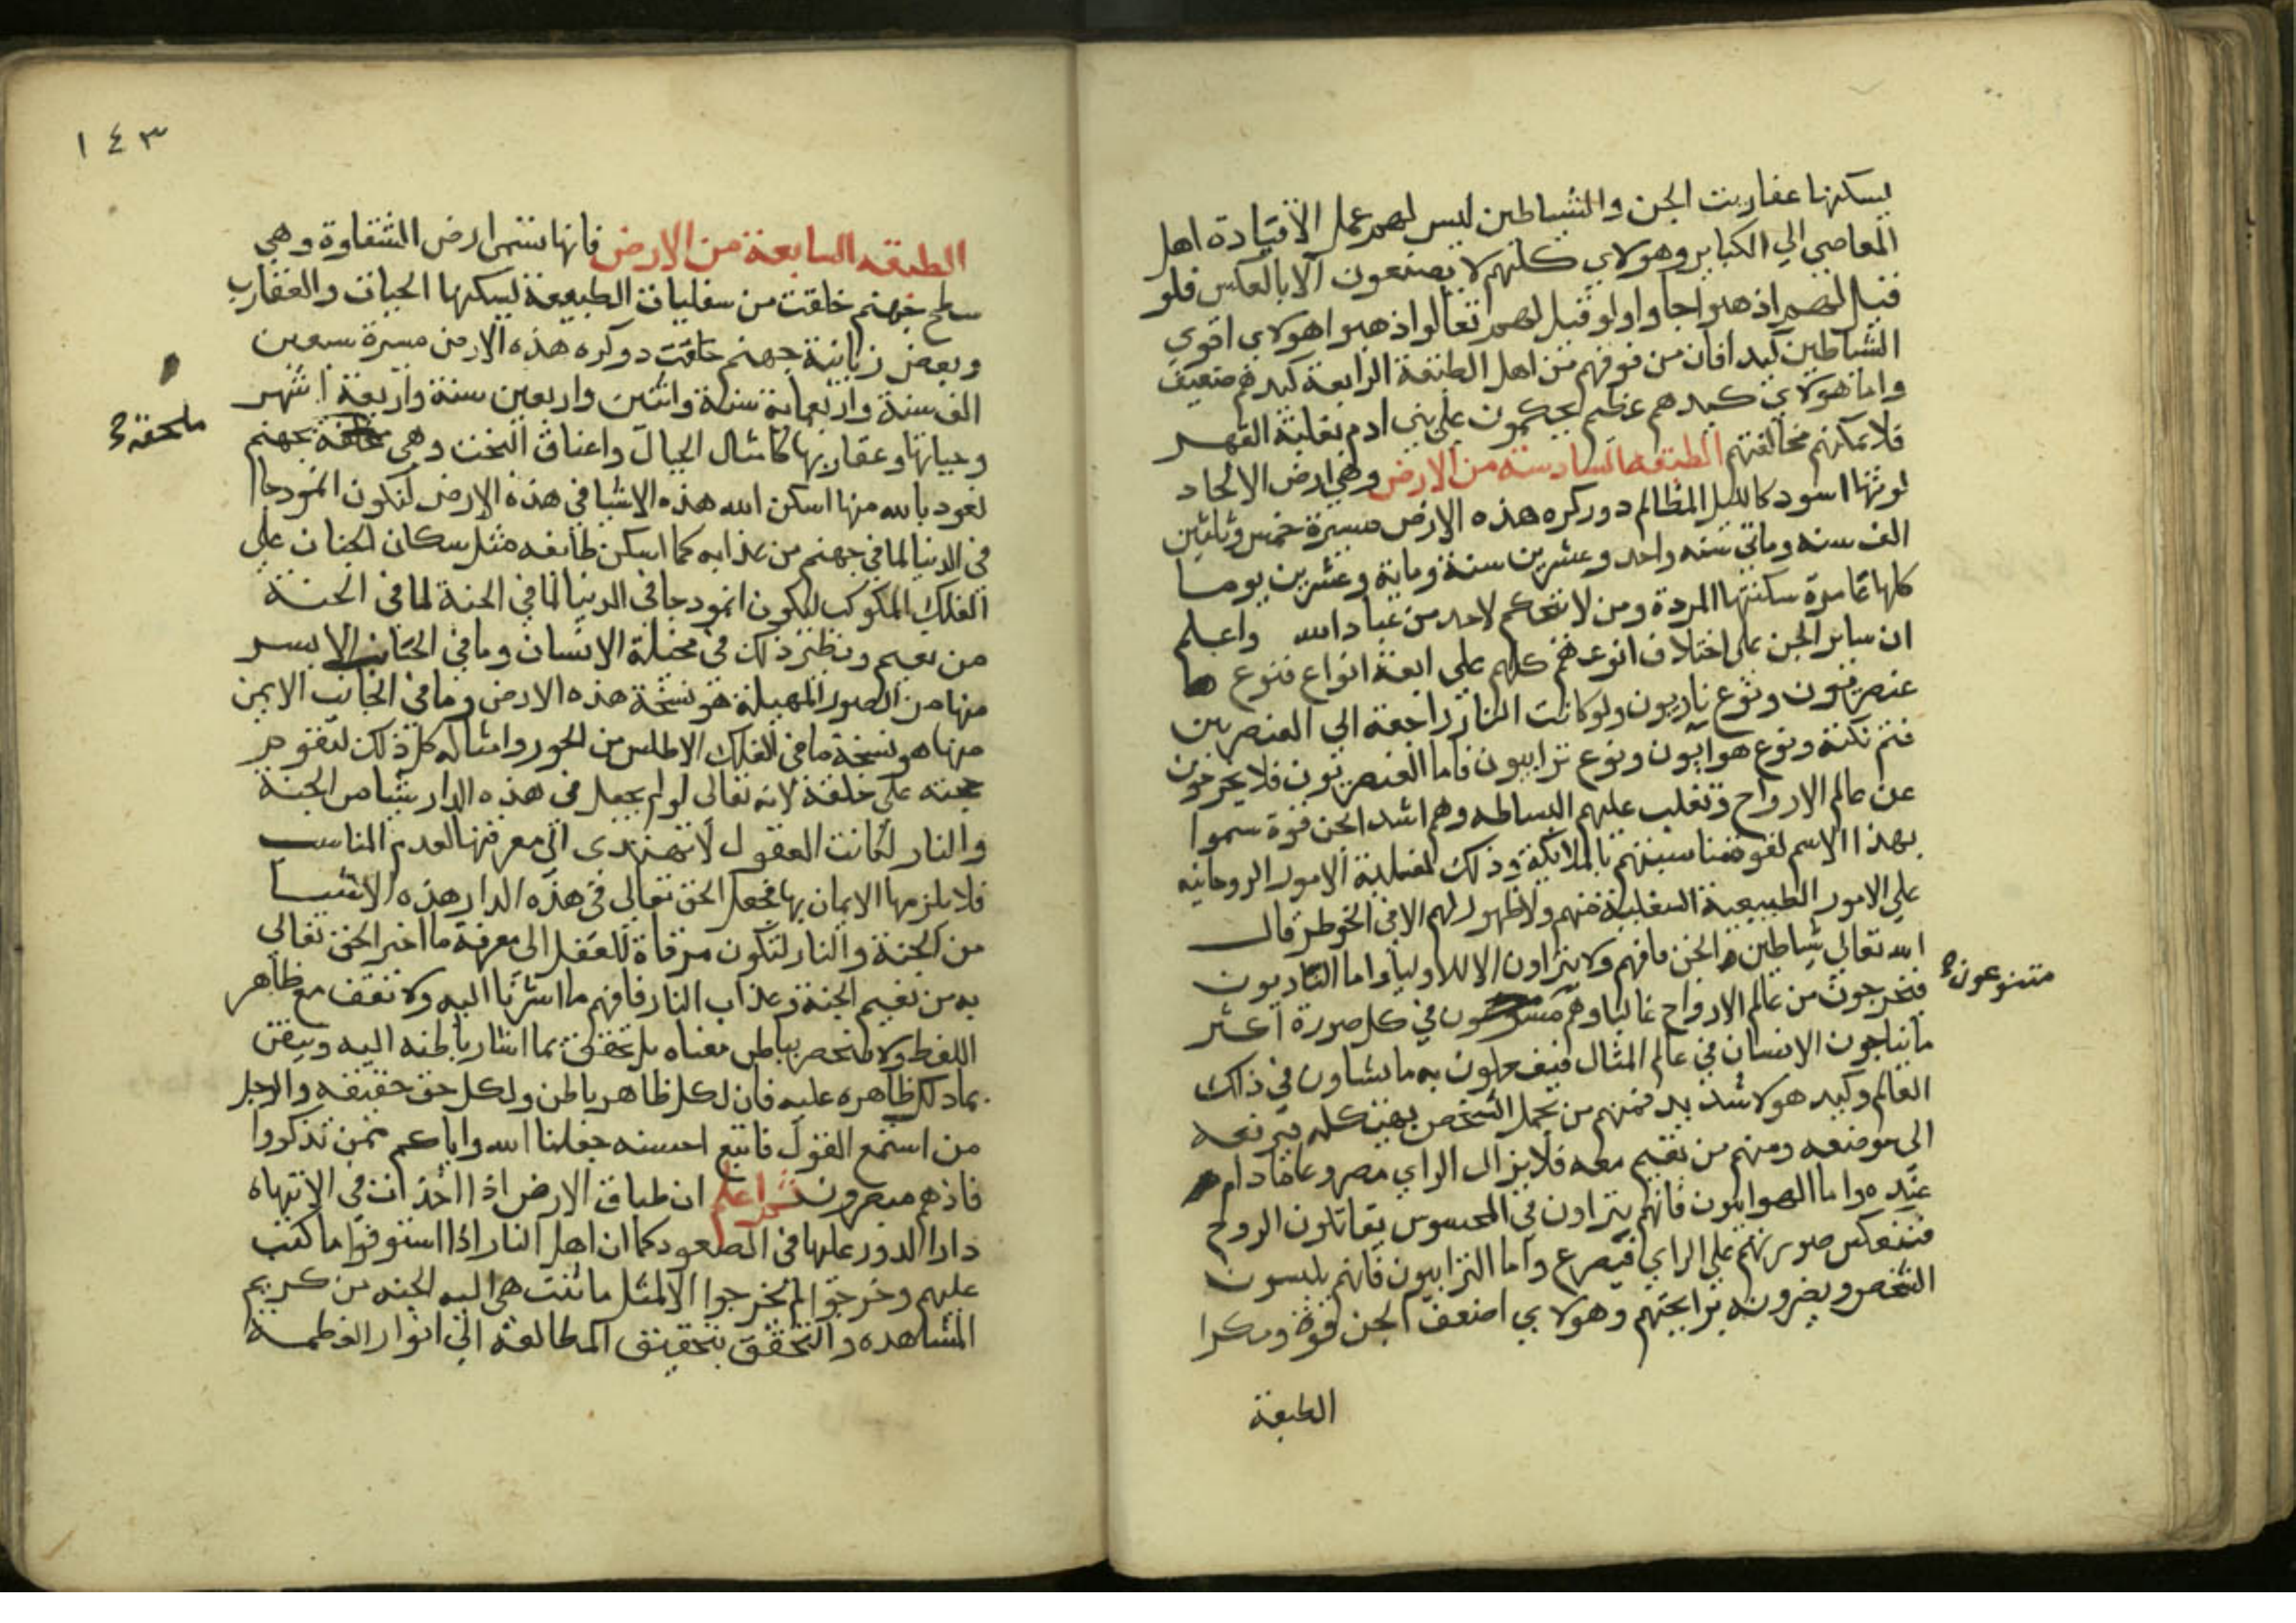 يسكنها عفاريت الجن والشياطين ليس لهم عمل الا قيادة اهل
المعاصي الي الكباير وهولاي كلهم لا يصنعون الا بالعكس فلو
قيل لهم اذهبوا جاوا ولو قيل لهم تعالوا ذهبوا هولاي اقوي
الشياطين كيدا فان من فوقهم من اهل الطبقة الرابعة كيدهم ضعيف
واما هولاي كيدهم عظيم يحكمون علي بني ادم بغلبة القهر
فلا يمكنهم مخالفتهم الطبقه السادسة من الارض وهي ارض الالحاد
لونها اسود كالليل المظالم دور كره هذه الارض مسيرة خمس وثلثين
الف سنه وماتي سنه واحد وعشرين سنة وماية وعشرين يوما
كلها عامرة سكنتها المردة ومن لا يتحكم لاحد من عباد الله واعلم
ان ساير الجن علي اختلاف انوعهم كلهم علي اربعة انواع فنوع
عنصريون ونوع ناريون ولو كانت النار راجعة الي العنصرين
فثم نكتة ونوع هوايون ونوع ترابيون فاما العنصريون فلا يخرجون
عن عالم الارواح وتغلب عليهم البساطه وهم اشد الجن قوة سموا
بهذا الاسم لقوة مناسبتهم بالملايكة وذلك لغلبة الامور الروحانيه
علي الامور الطبيعية السفلية منهم ولا ظهور لهم الا في الخوطر قال
الله تعالي شياطين الجن فافهم ولا يتراون الا للاوليا واما الناريون
فيخرجون من عالم الارواح غالبا وهم في كل صورة اكثر
متنوعون
ما يناجون الانسان في عالم المثال فيفعلون به ما يشاون في ذلك
العالم وكيد هولا شديد فمنهم من يحمل الشخص بهيكله فيرفعه
الي موضعه ومنهم من يقيم معه فلا يزال الراي مصروعا ما دام
عنده واما الهوايون فانهم يتراون في المحسوس يقاتلون الروح
فتنعكس صورتهم علي الراي فيصرع واما الترابيون فانهم يلبسون
الشخص ويضرونه برايحتهم وهولاي اضعف الجن قوة ومكرا
الطبقة
١٤٣
الطبقه السابعة من الارض فانها تسمى ارض الشقاوة وهي
سطح جهنم خلقت من سفليات الطبيعة يسكنها الحيات والعقارب
وبعض زبانية جهنم خلقت دوكره هذه الارض مسيرة سبعين
الف سنة واربعماية سنة واثنين واربعين سنة واربعة اشهر
وحياتها وعقاربها كامثال الجبال واعناق البخت وهي بجهنم
ملحقة
نعود بالله منها اسكن الله هذه الاشيا في هذه الارض لتكون انمودجا
في الدنيا لما في جهنم من عذابه كما اسكن طايفه مثل سكان الجنان علي
الفلك المكوكب ليكون انمودجا في الدنيا لما في الجنة
من نعيم ونظير ذلك في مخيلة الانسان وما في الجانب الايسر
منها من الصور المهيلة هو نسخة هذه الارض وما في الجانب الايمن
منها هو نسخة ما في الفلك الاطلس من الحور وامثاله كل ذلك لتقوم
حجته علي خلقة لانه تعالي لو لم يجعل في هذه الدار شيا من الجنة
والنار لكانت العقول لا تهتدى الي معرفتها لعدم المناسب
فلا يلزمها الايمان بها فجعل الحق تعالي في هذه الدار هذه الاشيا
من الجنة والنار لتكون مرقاة للعقل الى معرفة ما اخبر الحق تعالي
به من نعيم الجنة وعذاب النار فافهم ما اشرنا اليه ولا تقف مع ظاهر
اللفظ ولا تنحصر بباطن معناه بل تحقق بما اشار باطنه اليه وتيقن
بما دلك ظاهره عليه فان لكل ظاهر باطن ولكل حق حقيقه والرجل
من استمع القول فاتبع احسنه جعلنا الله واياكم ممن تذكروا
فاذهم مبصرون ثم اعلم ان طباق الارض اذا اخذت في الانتهاه
دار الدور عليها في الصعود كما ان اهل النار اذا استوفوا ما كتب
عليهم وخرجوا لم يخرجوا الا لمثل ما ئنت هي اليه الجنه من كريم
المشاهده والتحقق بتحقيق المطالعة الي انوار العظمه